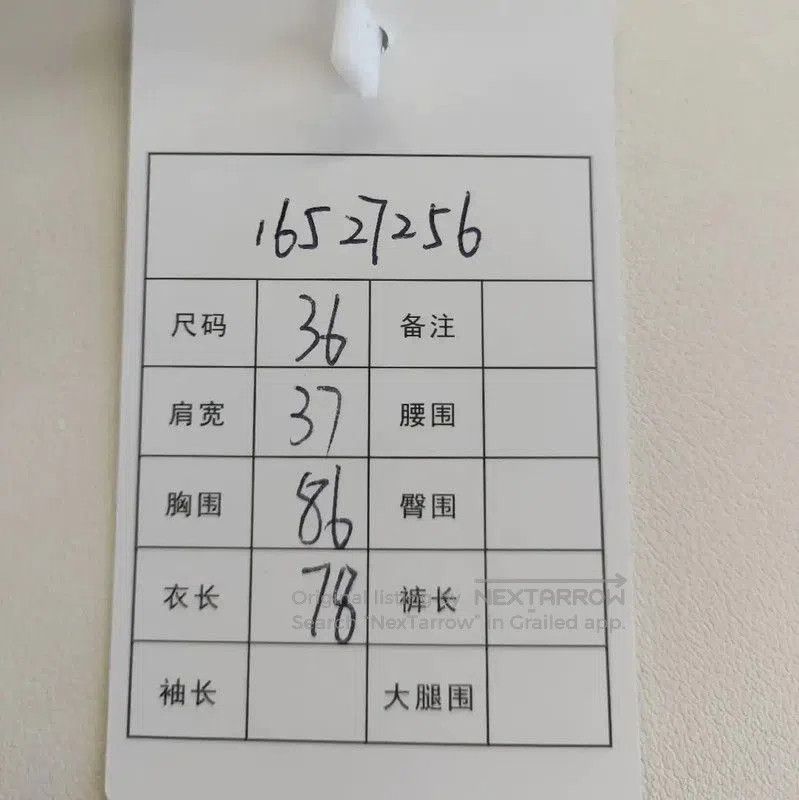 16527256
尺码 36 备注
肩宽 37 腰围
胸围 86 臀围
衣长 78 裤长
Original listing by NEXTARROW
Search "NexTarrow" in Grailed app.
袖长 大腿围